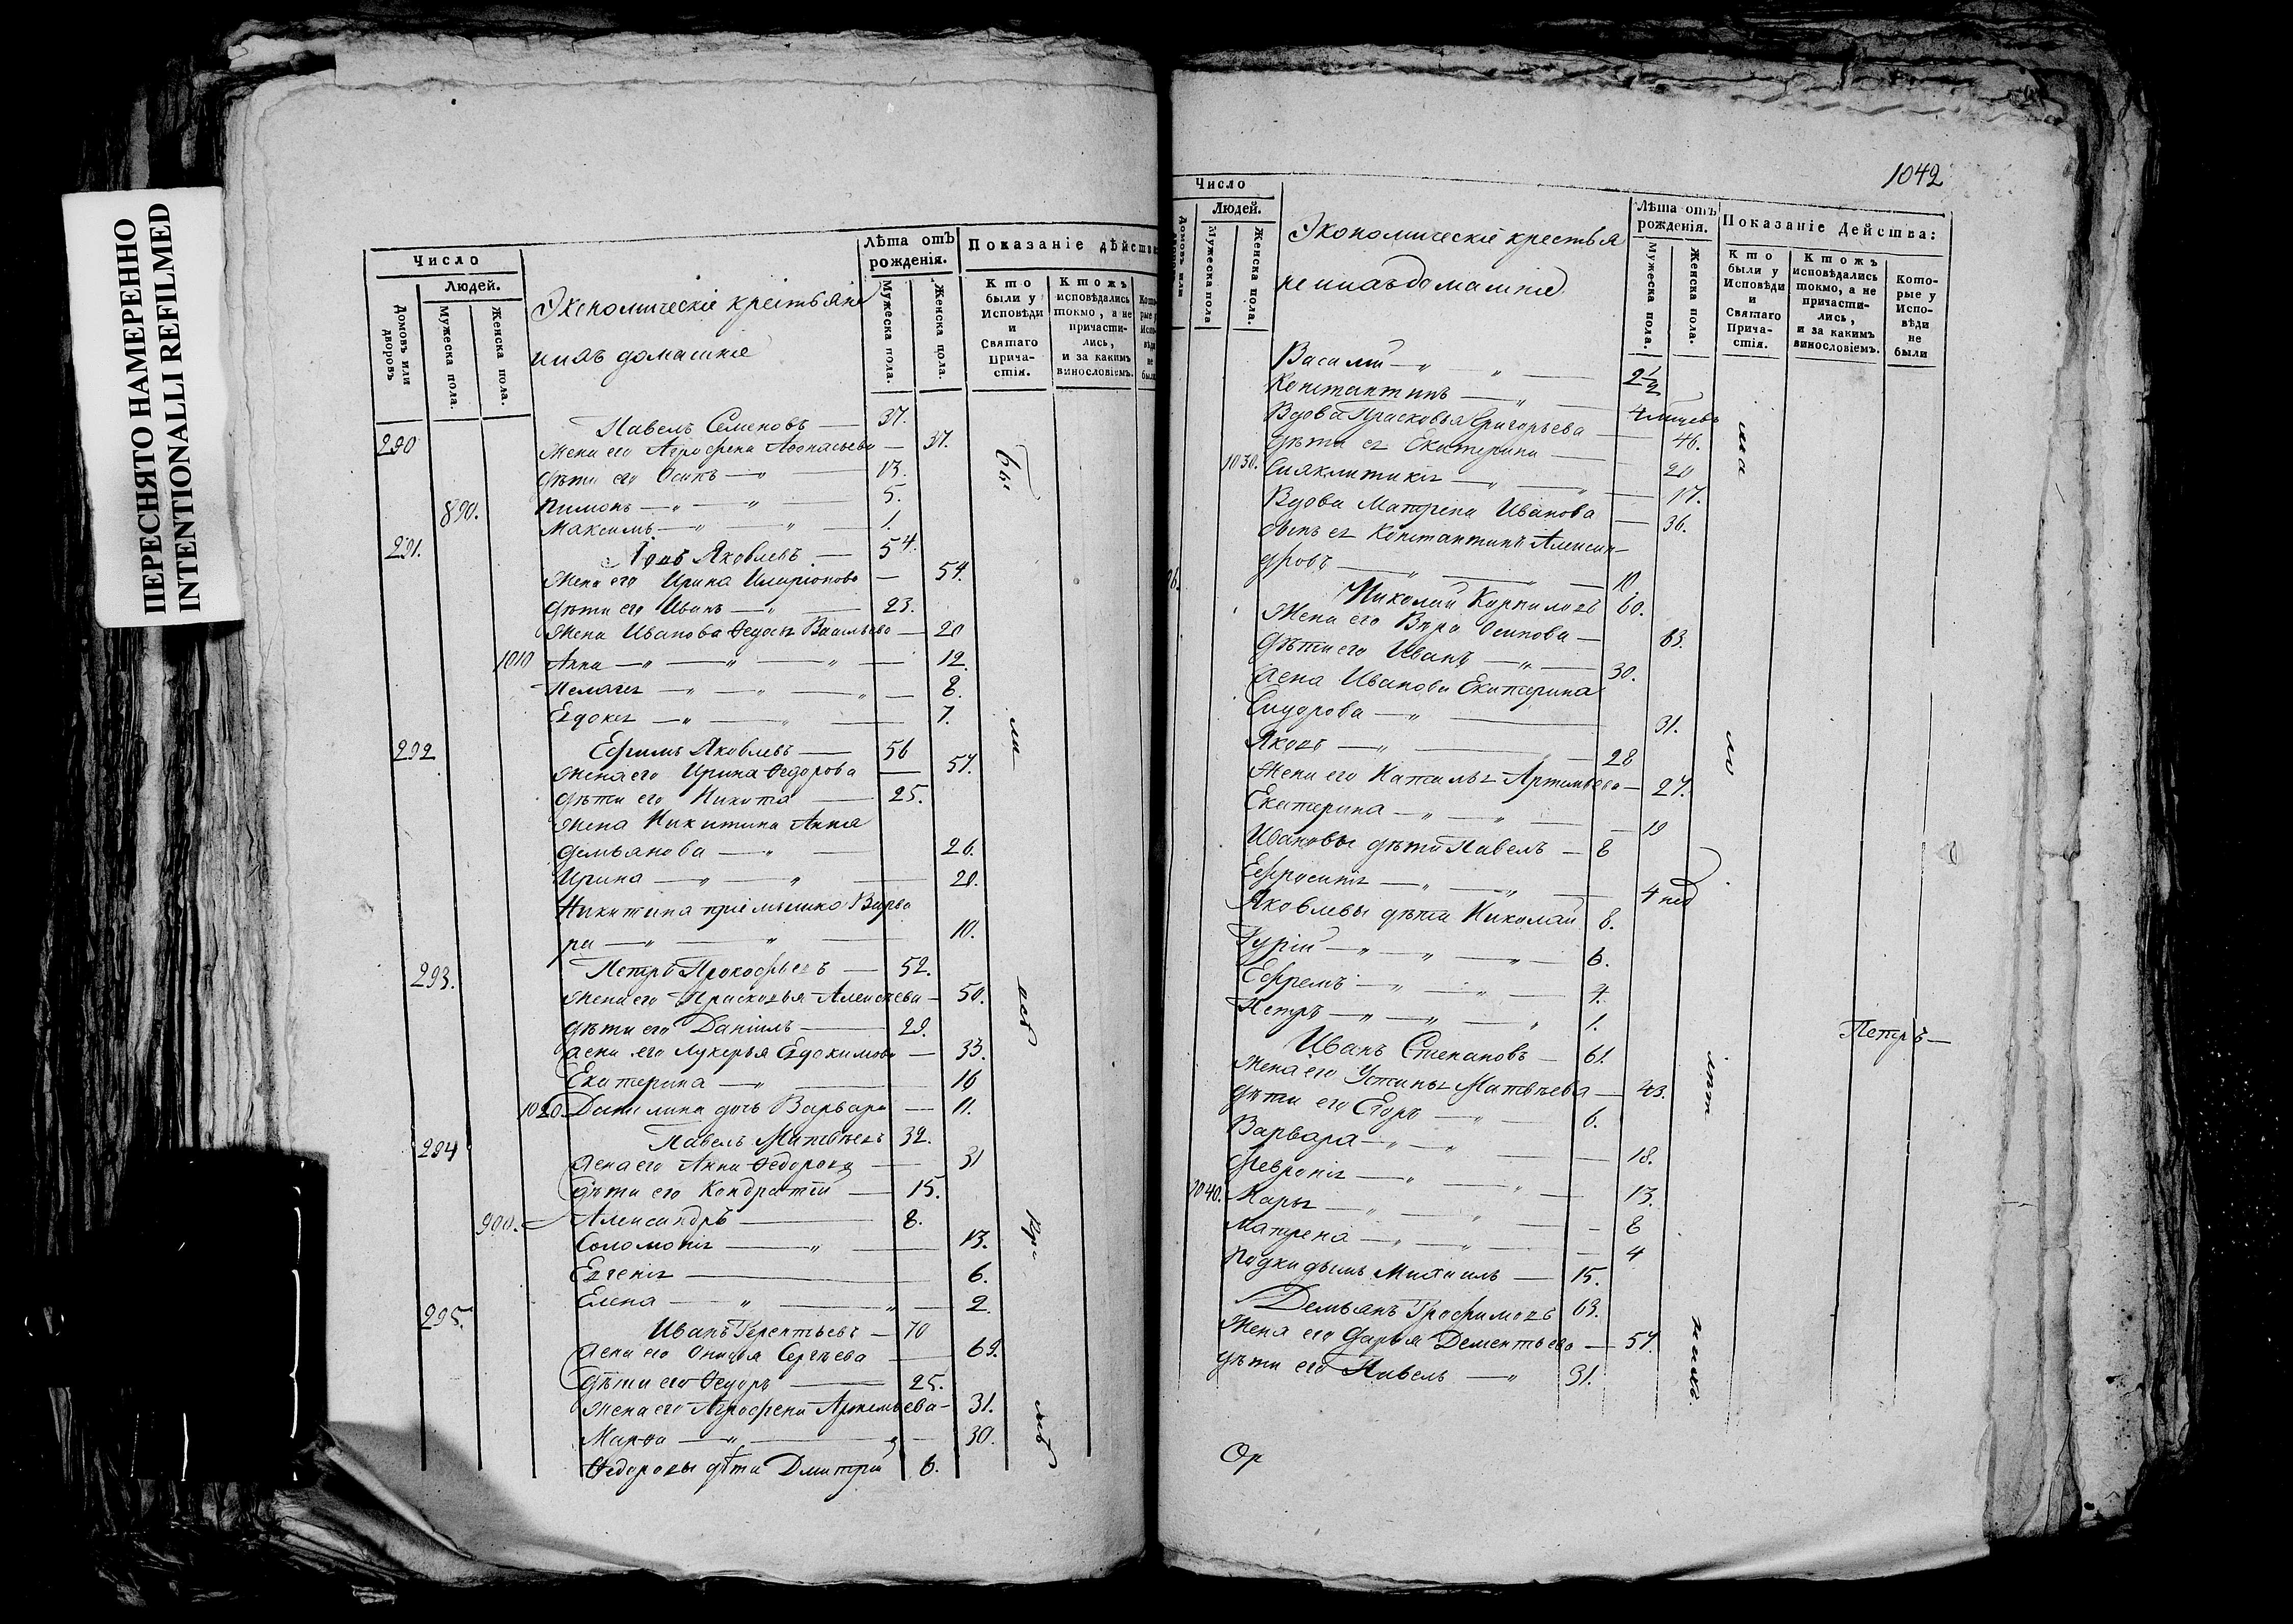 ПЕРЕСНЯТО НАМЕРЕННО
INTENTIONALLI REFILMED
Число
Людей.
Домовъ или дворовъ
Мужеска пола.
Женска пола.
Экономическіе крестьяне
ихъ домашніе
Лѣта отъ рожденія.
Мужеска пола.
Женска пола.
Показаніе дѣйства
Кто были у Исповѣди и Святаго Причастія.
Ктожъ исповѣдались токмо, а не причастились, и за какимъ винословіемъ.
290 Павелъ Семеновъ — 37.
Жена его Агрофена Афонасьева — 37.
дѣти его Осипъ — 13.
890. Пимонъ — 5.
Максимъ — 1.
291. Яковлевъ — 54.
Жена его Ирина Иларіонова — 54.
дѣти его Иванъ — 23.
Жена Иванова Федосья Васильева — 20
1010 Анна — 12.
Пелагея — 8.
Евдокея — 7.
292 Ефимъ Яковлевъ — 56
Жена его Ирина Федорова — 57.
дѣти его Никита — 25.
Жена Никитина Анна
Демьянова — 26.
Ирина — 20.
Никитина пріемышка Варва
ра — 10.
293. Петръ Прокофьевъ — 52.
Жена его Прасковья Алексѣева — 50.
дѣти его Даніилъ — 29.
жена его Лукерья Евдокимова — 33.
Екатерина — 16
1020. Данилина дочь Варвара — 11.
294 Павелъ Матвѣевъ 32.
жена его Анна Федорова — 31
дѣти его Кондратій — 15.
900. Александръ — 8.
Соломонія — 13.
Евгенія — 6.
Елена — 2.
295. Иванъ Терентьевъ — 70
жена его Онисья Сергѣева — 69.
дѣти его Федоръ — 25.
Жена его Агрофена Артемьева — 31.
Марфа — 30.
Федоровы дѣти Дмитрій 6.
бы
ли
всѣ
1042
Число
Людей.
Домовъ или
Мужеска пола
Женска пола.
Экономическіе крестья
не ихъ домашніе
Лѣта отъ рожденія.
Мужеска пола.
Женска пола.
Показаніе Действа:
Кто были у Исповѣди и Святаго Причастія.
Ктожъ исповѣдались токмо, а не причастились, и за какимъ винословіемъ.
Которые у Исповѣди не были
Василій — 2 1/2
Константинъ — 4 месецъ
Вдова Прасковья Григорьева — 46.
дѣти ея Екатерина — 20
1030. Синклитикія — 17.
Вдова Матрена Иванова — 36.
сынъ ея Константинъ Алексан-
дровъ — 10.
Николай Карпиловъ 60.
Жена его Вѣра Осипова — 63.
дѣти его Иванъ — 30.
жена Иванова Екатерина
Сидорова — 31.
Яковъ — 28
Жена его Наталья Артемьева — 27.
Екатерина — 19
Ивановы дѣти Павелъ — 8
Ефросинія — 4 нед
Яковлевы дѣти Николай 8.
Гурій — 6.
Ефремъ — 4.
Петръ — 1.
Петръ —
Иванъ Степановъ — 61.
Жена его Устинья Матвѣева — 43.
дѣти его Егоръ — 6.
Варвара — 18.
Февронія — 13.
1040. Марья — 8
Матрена — 4
Подкидышъ Михаилъ — 15.
Демьянъ Трофимовъ 63.
Жена его Дарья Дементьева — 57.
дѣти его Павелъ — 31.
Ор